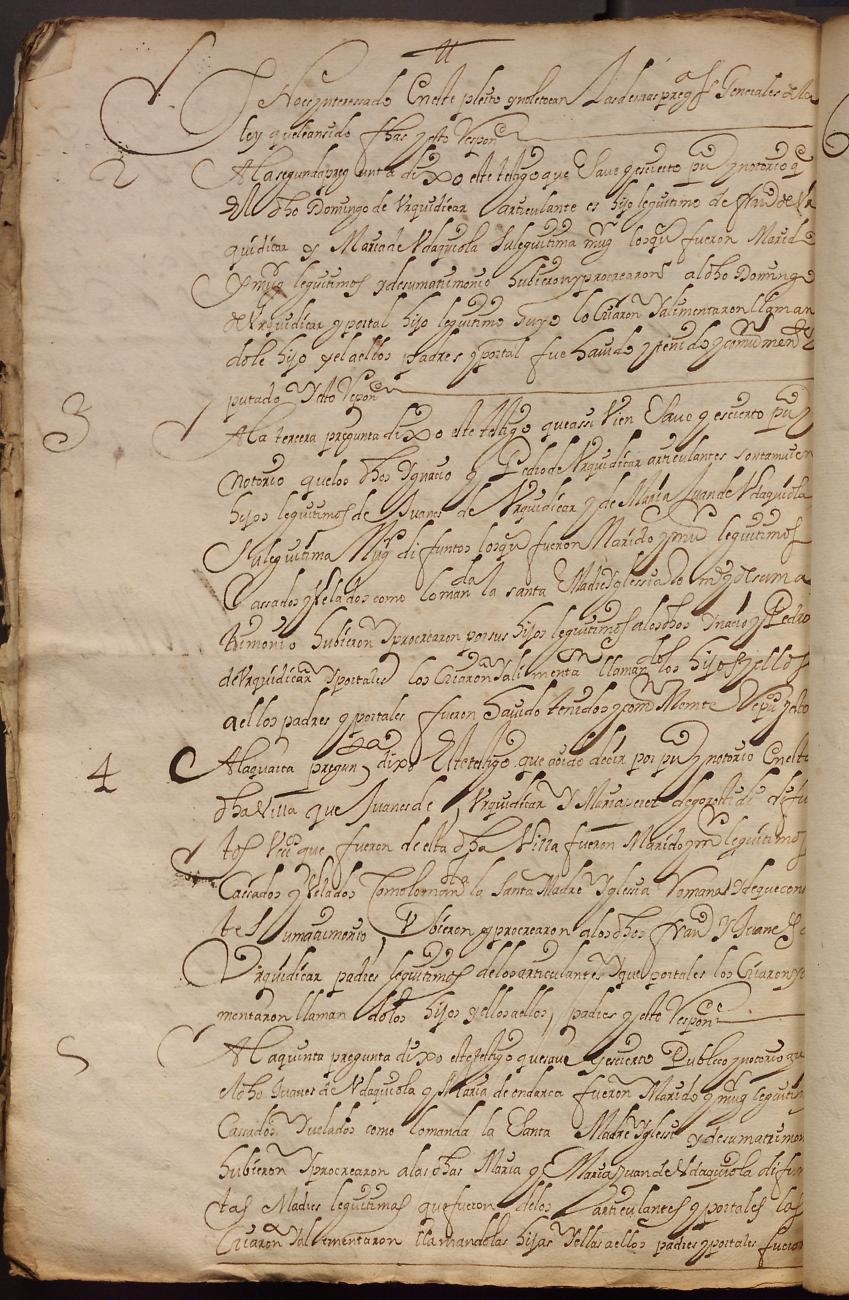 No es ynteressado En este pleito y no le tocan Las demas preg.s Generales de la
ley que le an sido fhas y esto Respon.e
2 A la segunda pregunta dixo este testigo que Save y es cierto pu.co y notorio q
El dho Domingo de Urquidicar articulante es hijo leguitimo de fran.co de Ur
quidicar y Maria de Udaquiola Su leguitima mug.r los q.e fueron Marido
y mug.r leguitimos y de su matrimonio hubieron y procrearon al dho Domingo
de Urquidicar y por tal hijo leguitimo suyo lo Criaron y alimentaron llaman
dole hijo y el a ellos padres y por tal fue havido y tenido y comunmen.te Re
putado Y esto Respon.e
3 A la tercera pregunta dixo este testigo que assi vien Save y es cierto pu.co y
notorio que los dhos Ygnacio y Pedro de Urquidicar articulantes son tamvien
hijos leguitimos de Juanes de Urquidicar y de Maria Juan de Udaquiola
Su leguitima Mug.r difuntos los q.e fueron Marido y mu.r leguitimos
Cassados y Velados como lo manda la santa Madre Yglessia Ro.na y de su ma
trimonio hubieron y procrearon por sus hijos leguitimos a los dhos Ynacio y Pedro
de Urquidicar y por tales los Criaron y alimenta.n llamandolos hijos y ellos
a ellos padres y por tales fueron havido tenidos y comu.Mente Repu.s y esto
4 A la quarta pregunta dixo Este testigo que a oido decir por pu.co y notorio En esta
dha Villa que Juanes de Urquidicar Y Maria perez de gorostidi difu
tos Vec.s que fueron de esta dha Villa fueron Marido y m.r leguitimos
Cassados y Velados Como lo manda la Santa Madre Yglesia Romana Y de que cons
te Su matrimonio Ubieron y procrearon a los dhos fran.co Y Juanes de
Urquidicar padres leguitimos de los articulantes Y que por tales los Criaron y ali
mentaron llamandolos hijos y ellos a ellos padres y esto Respon.e
5 A la quinta pregunta dixo este testigo que save y es cierto Publico y notorio que
el dho Juanes de Udaquiola y Maria de endarca fueron Marido y mug.r leguitimos
Cassados Y velados como lo manda la Santa Madre Yglessia y de su matrimon
hubieron y procrearon a las dhas Maria y Maria Juan de Udaquiola difun
tas Madres leguitimas que fueron de los articulantes y por tales las
Criaron y alimentaron llamandolas hijas y ellas a ellos padres y por tales fueron